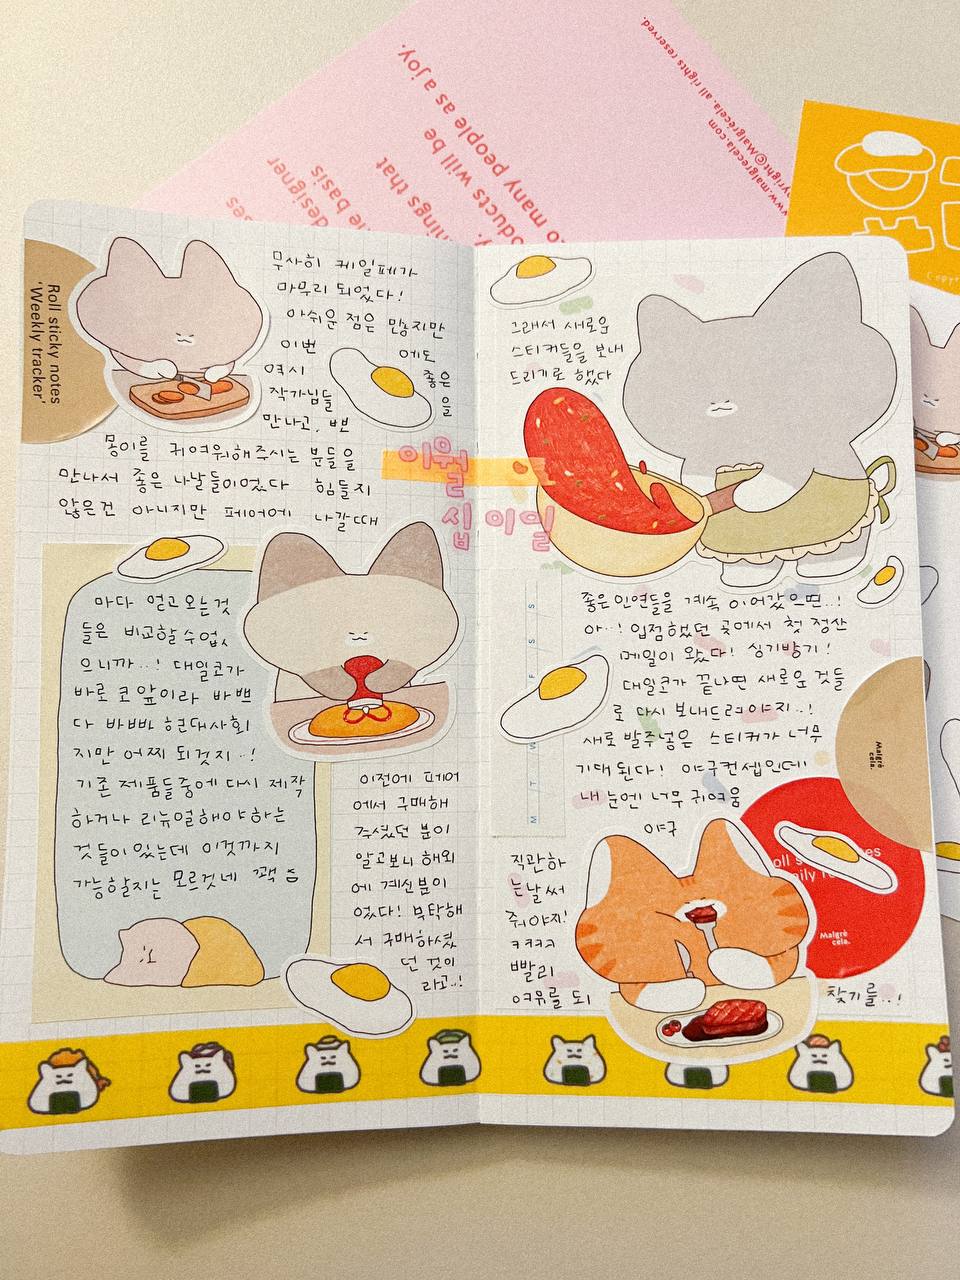 joy.
to many people as a joy.
products will be
things that
the basis
designer
www.malgrecela.com
Copyright©Malgrécela. all rights reserved.
Roll sticky notes
'Weekly tracker'
무사히 케일페가
마무리 되었다!
아쉬운 점은 많지만
이번에도
역시 좋은
작가님들을
만나고, 뽀
몽이를 귀여워해주시는 분들을
만나서 좋은 나날들이었다 힘들지
않은건 아니지만 페어에 나갈때
이월
십이일
마다 얻고 오는것
들은 비교할수없
으니까..! 대일코가
바로 코앞이라 바쁘
다 바빠 현대사회
지만 어찌 되겠지..!
기존 제품들중에 다시 제작
하거나 리뉴얼해야하는
것들이 있는데 이것까지
가능할지는 모르겠네 꽥
이전에 페어
에서 구매해
주셨던 분이
알고보니 해외
에 계신분이
었다! 부탁해
서 구매하셨
던 것이
라고..!
그래서 새로운
스티커들을 보내
드리기로 했다
좋은인연들을 계속 이어갔으면..!
아..! 입점했던 곳에서 첫 정산
메일이 왔다! 싱기방기!
대일코가 끝나면 새로운 것들
로 다시 보내드려야지..!
새로 발주넣은 스티커가 너무
기대된다! 야구컨셉인데
내 눈엔 너무 귀여움
야구
직관하
는날 써
줘야지!
ㅋㅋㅋㅋ
빨리
여유를 되
찾기를..!
M T W F / S / S
Malgré
cela.
Malgré
cela.